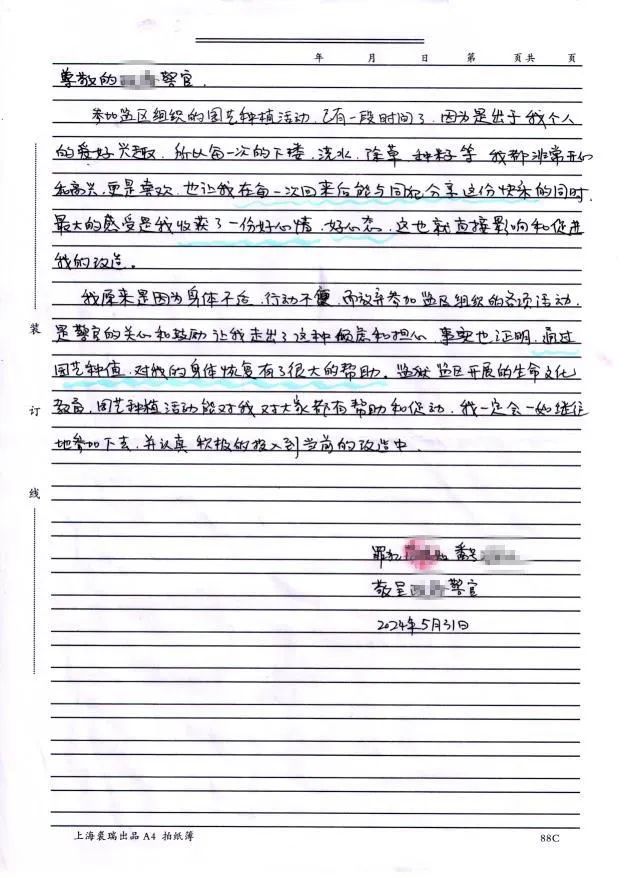 年 月 日 第 页共 页
尊敬的 警官.
参加监区组织的园艺种植活动,已有一段时间了,因为是出于我个人
的爱好兴趣,所以每一次的下楼,浇水,除草,种籽等,我都非常开心
和高兴,更是喜欢,也让我在每一次回来后能与同犯分享这份快乐的同时,
最大的感受是我收获了一份好心情,好心态,这也就直接影响和促进
我的改造。
我原来是因为身体不适,行动不便,而放弃参加监区组织的各项活动,
是警官的关心和鼓励让我走出了这种顾虑和担心,事实也证明,通过
园艺种植,对我的身体恢复有了很大的帮助。监狱监区开展的生命文化
教育,园艺种植活动能对我对大家都有帮助和促动,我一定会一如继往
地参加下去,并认真积极的投入到当前的改造中.
罪犯 番号
敬呈 警官
2024年5月31日
装
订
线
上海裘瑞出品A4 拍纸簿
88C